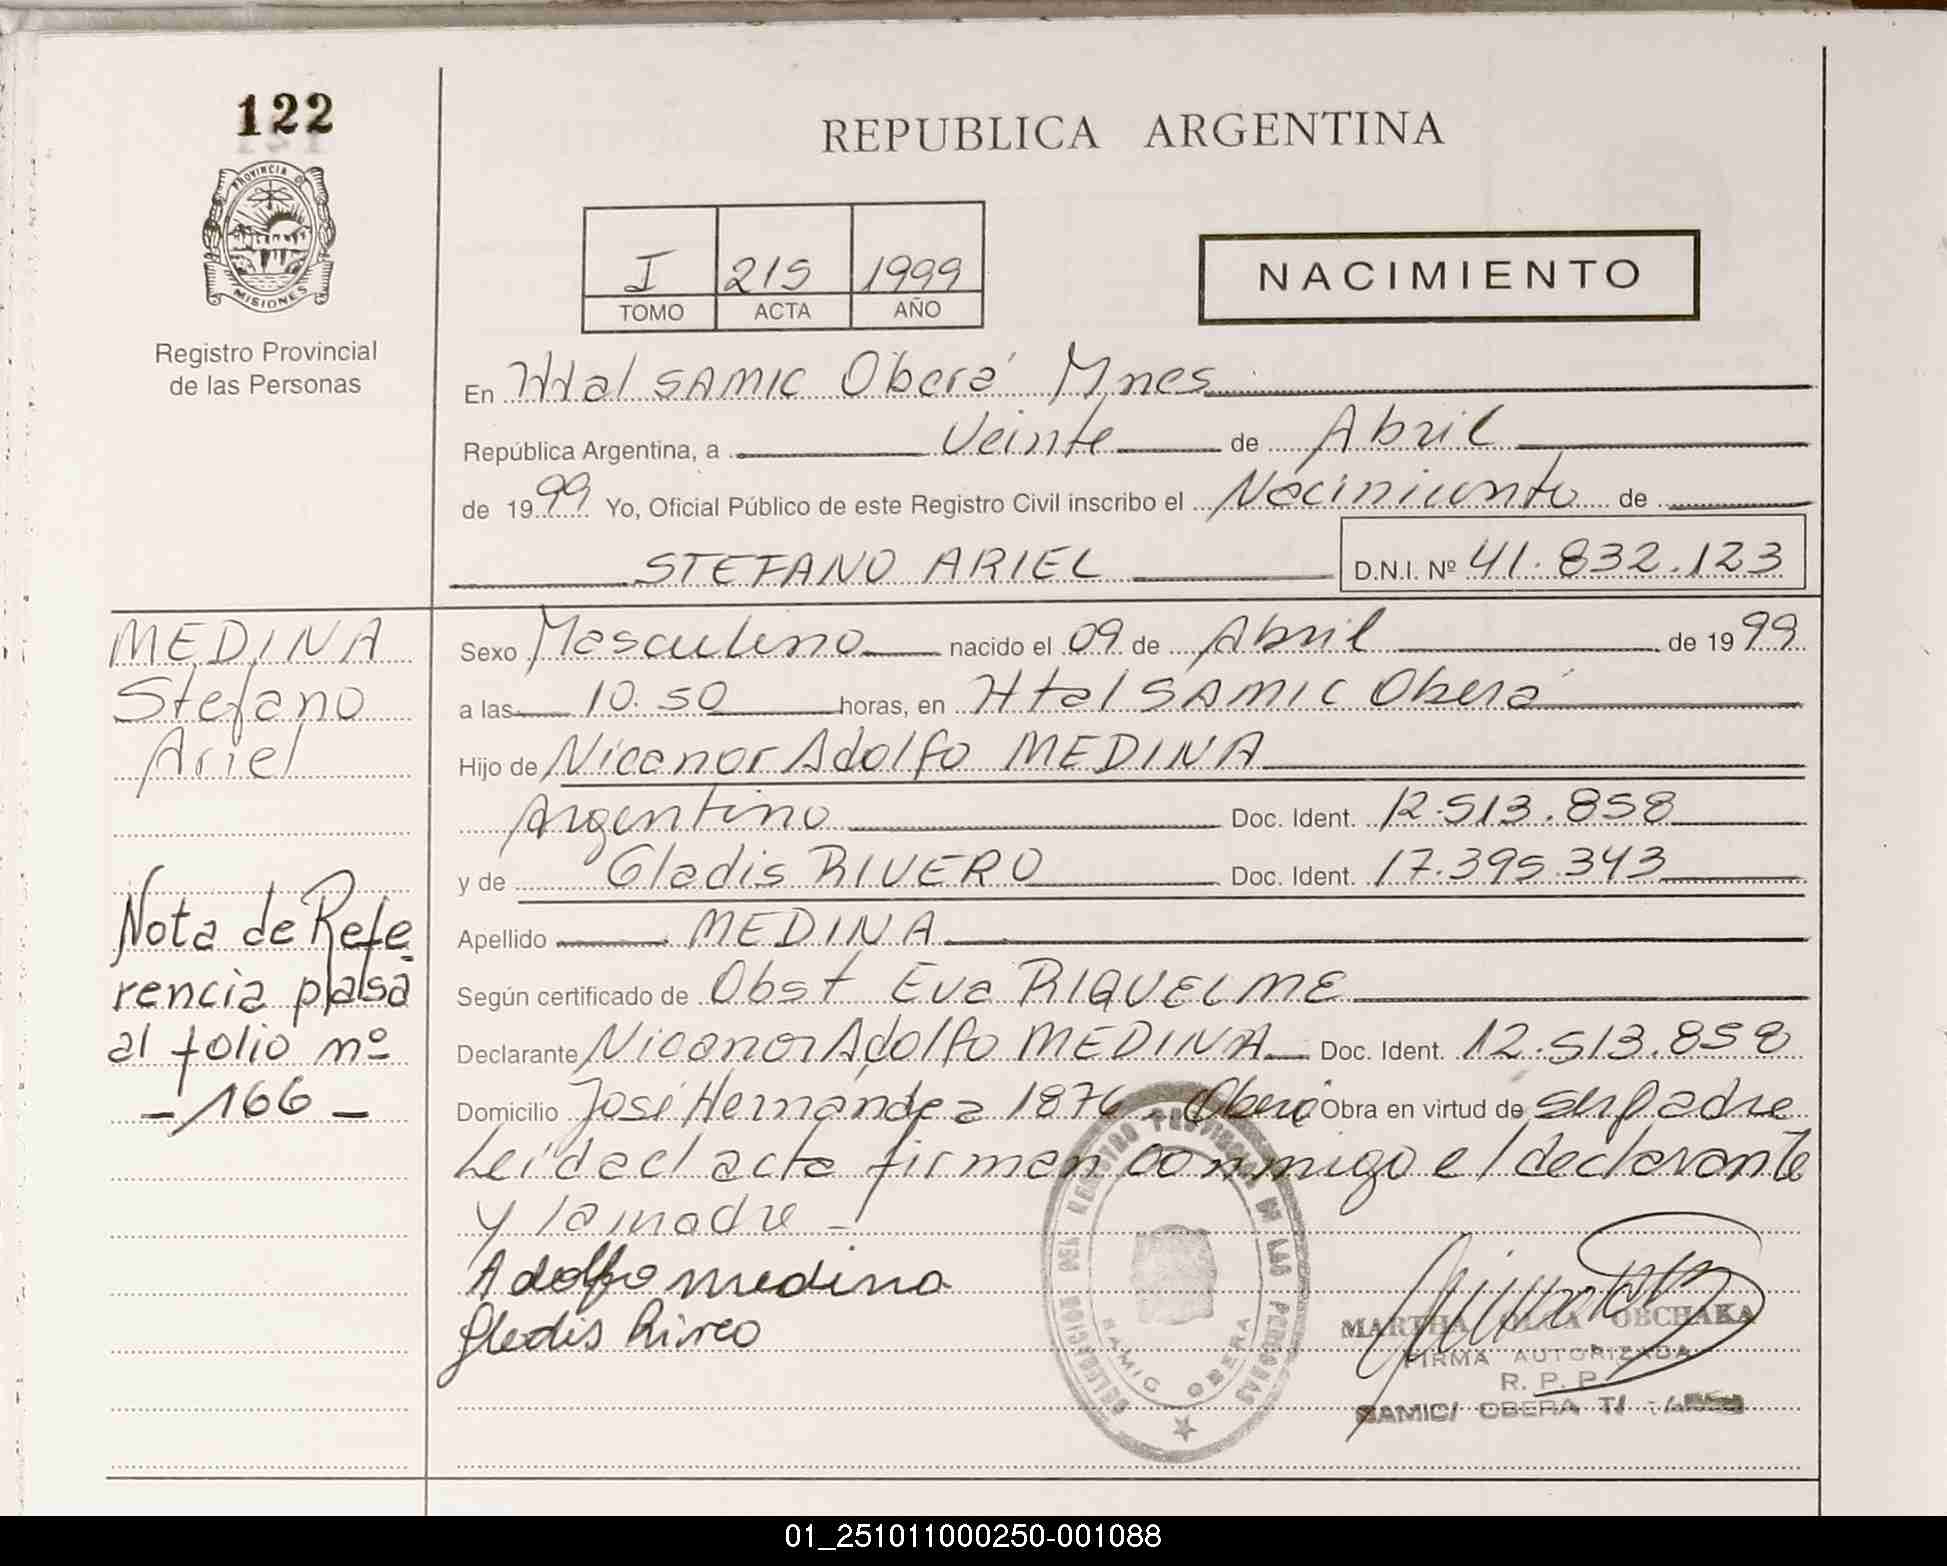 122
REPUBLICA ARGENTINA
PROVINCIA DE
MISIONES
Registro Provincial
de las Personas
I 215 1999
TOMO ACTA AÑO
NACIMIENTO
En Htal SAMIC Oberá Mnes
República Argentina, a Veinte de Abril
de 1999 Yo, Oficial Público de este Registro Civil inscribo el Nacimiento de
STEFANO ARIEL D.N.I. Nº 41.832.123
MEDINA
Stefano
Ariel
Sexo Masculino nacido el 09 de Abril de 1999
a las 10.50 horas, en Htal SAMIC Oberá
Hijo de Nicanor Adolfo MEDINA
Argentino Doc. Ident. 12.513.858
y de Gladis RIVERO Doc. Ident. 17.395.343
Apellido MEDINA
Según certificado de Obst Eva RIQUELME
Declarante Nicanor Adolfo MEDINA Doc. Ident. 12.513.858
Domicilio José Hernández 1876 - Oberá Obra en virtud de ser padre
Leída el acta firman conmigo el declarante
y la madre -
Adolfo medina
Gledis Rivero
Nota de Refe
rencia pasa
al folio nº
- 166 -
DEL REGISTRO PROVINCIAL DE LAS PERSONAS
SAMIC OBERA
MARTHA OLGA OBCHAKA
FIRMA AUTORIZADA
R. P. P.
SAMIC/ OBERA T/
01_251011000250-001088